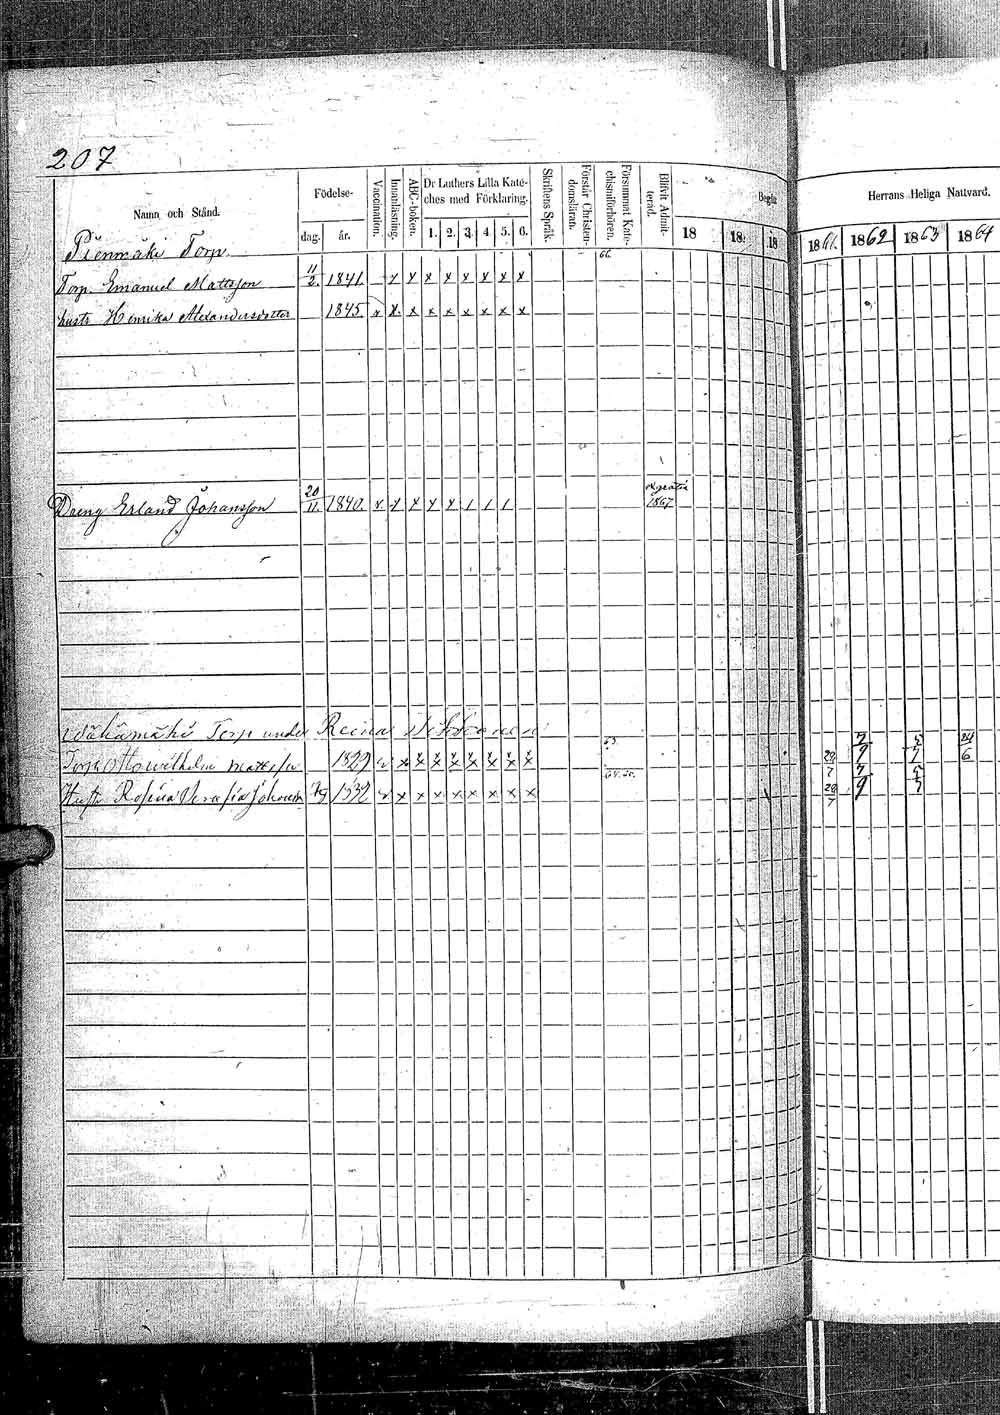 207
Namn och Stånd. Födelse- dag. år. Vaccination. Innanläsning. ABC-boken. Dr Luthers Lilla Kate-ches med Förklaring. 1. 2. 3. 4. 5. 6. Skriftens Språk. Förstår Christen-domsläran. Försummat Kate-chismiförhören. Blifvit Admit-terad. Begår 18 18 18 Herrans Heliga Nattvard. 1861. 1862 1863 1864
Pienmäki Torp. 66.
Torp. Emanuel Mattsson 11/2. 1841. x x x x x x x x
hustr Henrika Alexandersdotter 1845 x x x x x x x x x
Dreng Erland Johansson 20/11. 1840. x x x x x / / / 1867
Wähämäki Torp under 63.
Torp Otto Wilhelm Mattsson 1829 x x x x x x x x 29/7 7/9 5/7 24/6
Hustr Rosina Serafia Johansd 1832 x x x x x x x x x 29/7 7/9 5/7